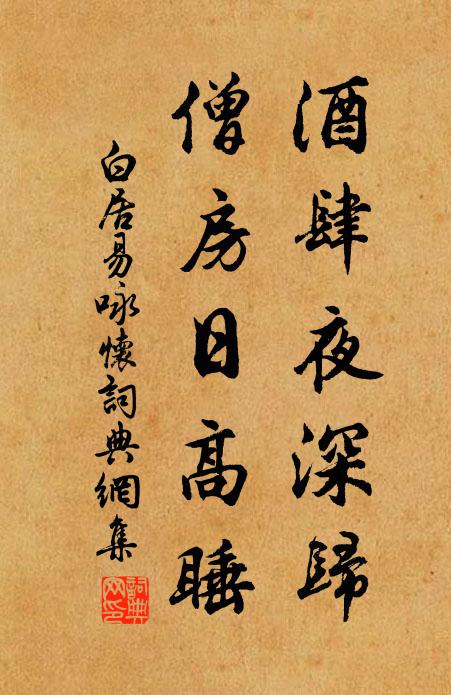 酒肆夜深歸
僧房日高睡
白居易咏懷詞典網集
詞典網印